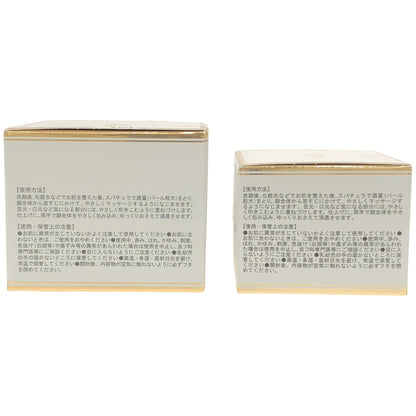 【使用方法】
洗顔後、化粧水などでお肌を整えた後、スパチュラで適量（パール
粒大）をとり、顔全体から首すじにかけて、やさしくマッサージ
するようになじませます。目元・口元など気になる部分には、やさ
しく叩きこむように重ねづけします。
仕上げに、両手で顔全体をやさしく包み込み、ゆっくりおさえて浸透させます。
【使用・保管上の注意】
●お肌に異常が生じていないかよく注意して使用してください●お肌に合
わないときは、ご使用をおやめください●使用中、赤み、はれ、かゆみ、刺激、
色抜け（白斑等）や黒ずみ等の異常があらわれた場合は使用を中止し、皮フ科
専門医等にご相談ください●目に入らないようにご注意ください●乳幼児
の手の届かないところに保管してください●高温・多湿・直射日光を避け、
常温で保管してください●開封後、内容物が空気に触れないように必ずフタ
を閉めてください。
【使用方法】
洗顔後、化粧水などでお肌を整えた後、スパチュラで適量（パール
粒大）をとり、顔全体から首すじにかけて、やさしくマッサージ
するようになじませます。目元・口元など気になる部分には、やさ
しく叩きこむように重ねづけします。仕上げに、両手で顔全体をやさしく
包み込み、ゆっくりおさえて浸透させます。
【使用・保管上の注意】
●お肌に異常が生じていないかよく注意して使用してください●
お肌に合わないときは、ご使用をおやめください●使用中、赤み、
はれ、かゆみ、刺激、色抜け（白斑等）や黒ずみ等の異常があらわれ
た場合は使用を中止し、皮フ科専門医等にご相談ください●
目に入らないようにご注意ください●乳幼児の手の届かないところに保管
してください●高温・多湿・直射日光を避け、常温で保管してください
●開封後、内容物が空気に触れないように必ずフタを閉めてください。